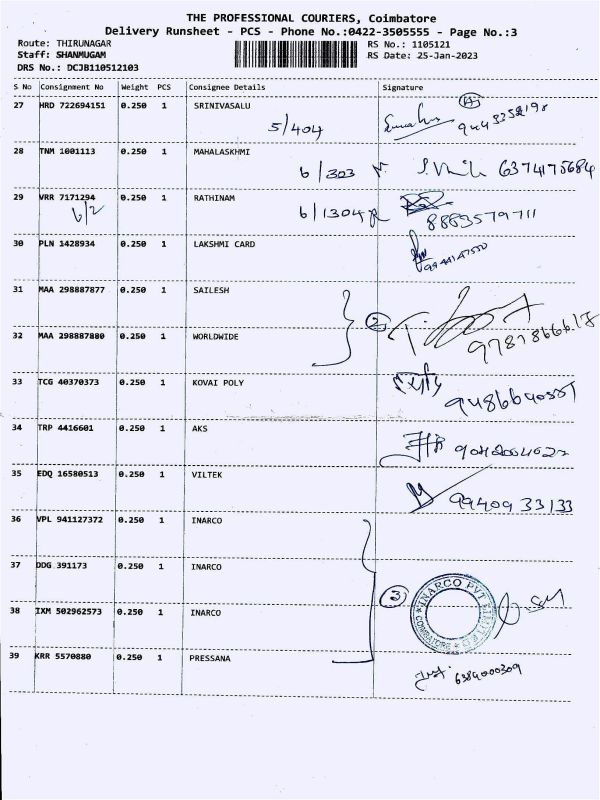 THE PROFESSIONAL COURIERS, Coimbatore
Delivery Runsheet - PCS - Phone No.:0422-3505555 - Page No.:3
Route: THIRUNAGAR
Staff: SHANMUGAM
DRS No.: DCJB110512103
RS No.: 1105121
RS Date: 25-Jan-2023
S No Consignment No Weight PCS Consignee Details Signature
27 HRD 722694151 0.250 1 SRINIVASALU
5/404
28 TNM 1001113 0.250 1 MAHALASKHMI
6/303 6374175684
29 VRR 7171294 0.250 1 RATHINAM
6/2 6/1304 8883579711
30 PLN 1428934 0.250 1 LAKSHMI CARD
31 MAA 298887877 0.250 1 SAILESH
2
32 MAA 298887880 0.250 1 WORLDWIDE
33 TCG 40370373 0.250 1 KOVAI POLY
34 TRP 4416601 0.250 1 AKS
35 EDQ 16580513 0.250 1 VILTEK
9940933133
36 VPL 941127372 0.250 1 INARCO
37 DDG 391173 0.250 1 INARCO
3
INARCO PVT LIMITED
COIMBATORE
38 IXM 502962573 0.250 1 INARCO
39 KRR 5570880 0.250 1 PRESSANA
6384000309